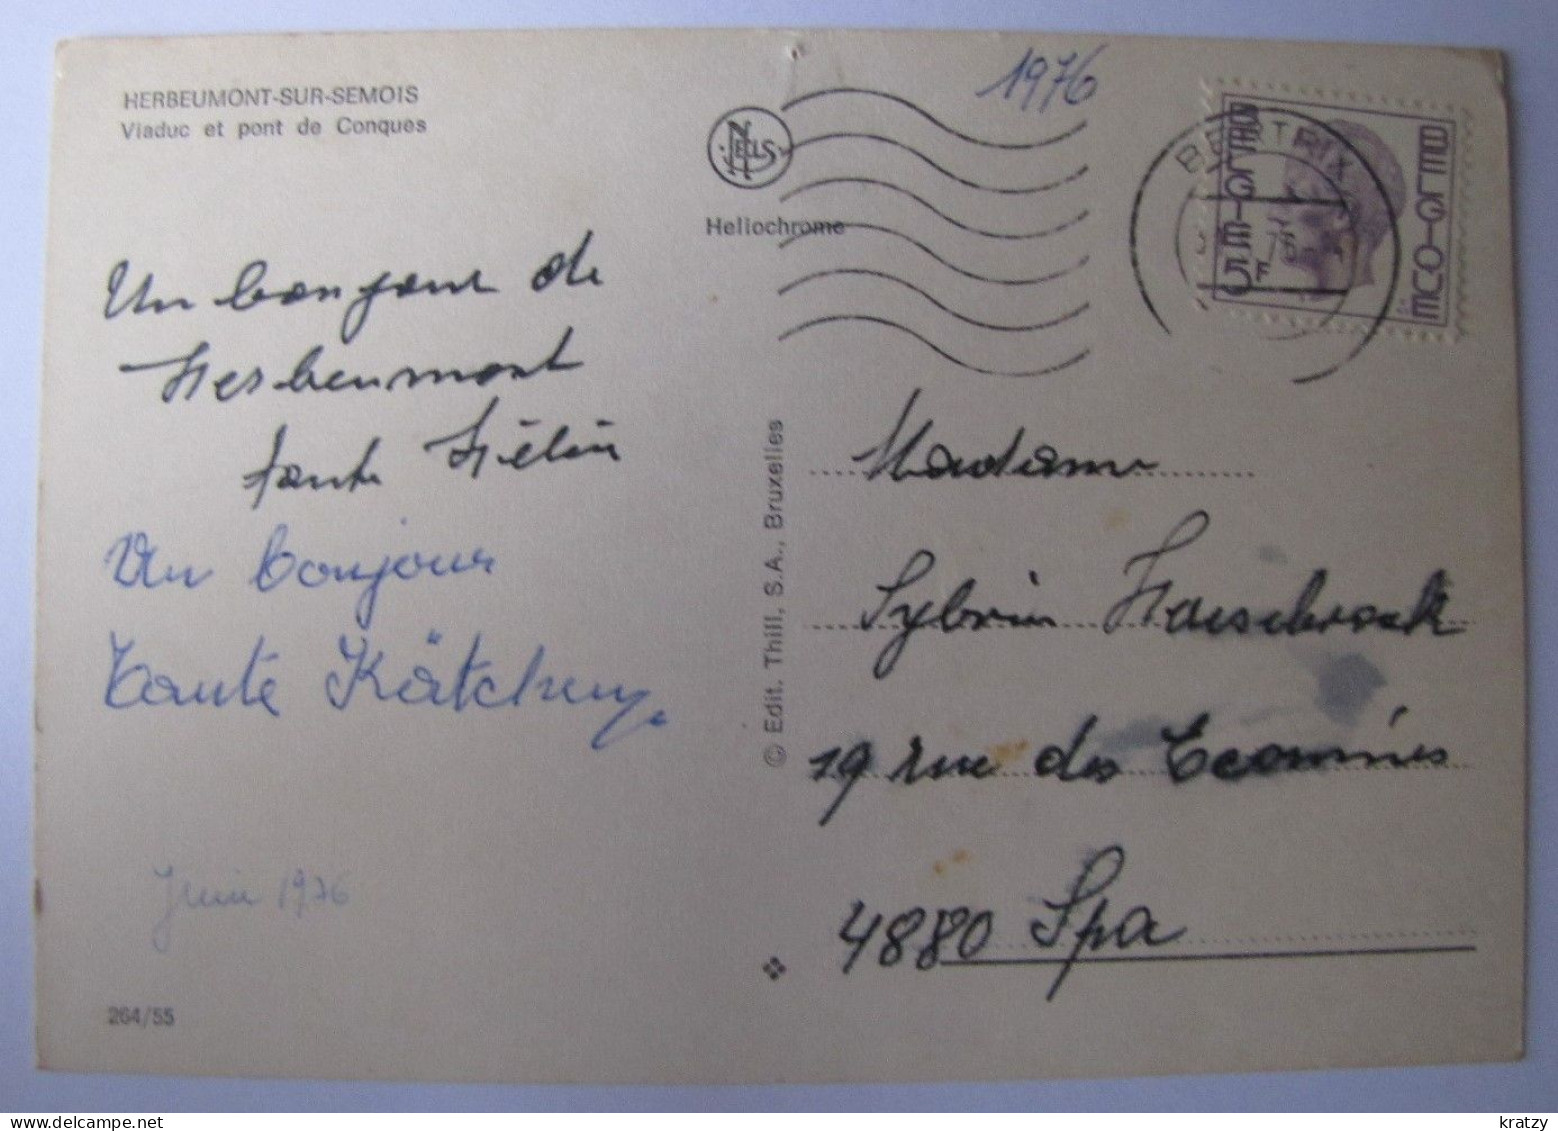 HERBEUMONT-SUR-SEMOIS
Viaduc et pont de Conques
1976
NELS
Heliochrome
BERTRIX
76
BELGIË
BELGIQUE
5F
Un bonjour de
Herbeumont
tante Hélène
Un bonjour
Tante Kätchen
Juin 1976
264/55
© Edit. Thill, S.A., Bruxelles
Madame
Sylvin
19 rue des Ecomines
4880 Spa
delcampe.net
kratzy